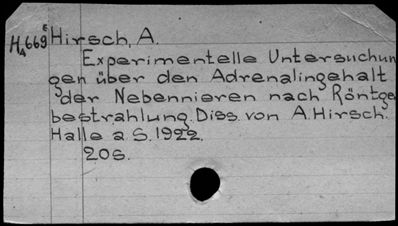 H₄669⁸ Hirsch, A.
Experimentelle Untersuchun
gen über den Adrenalingehalt
der Nebennieren nach Röntge
bestrahlung. Diss. von A. Hirsch.
Halle a S. 1922.
20 s.